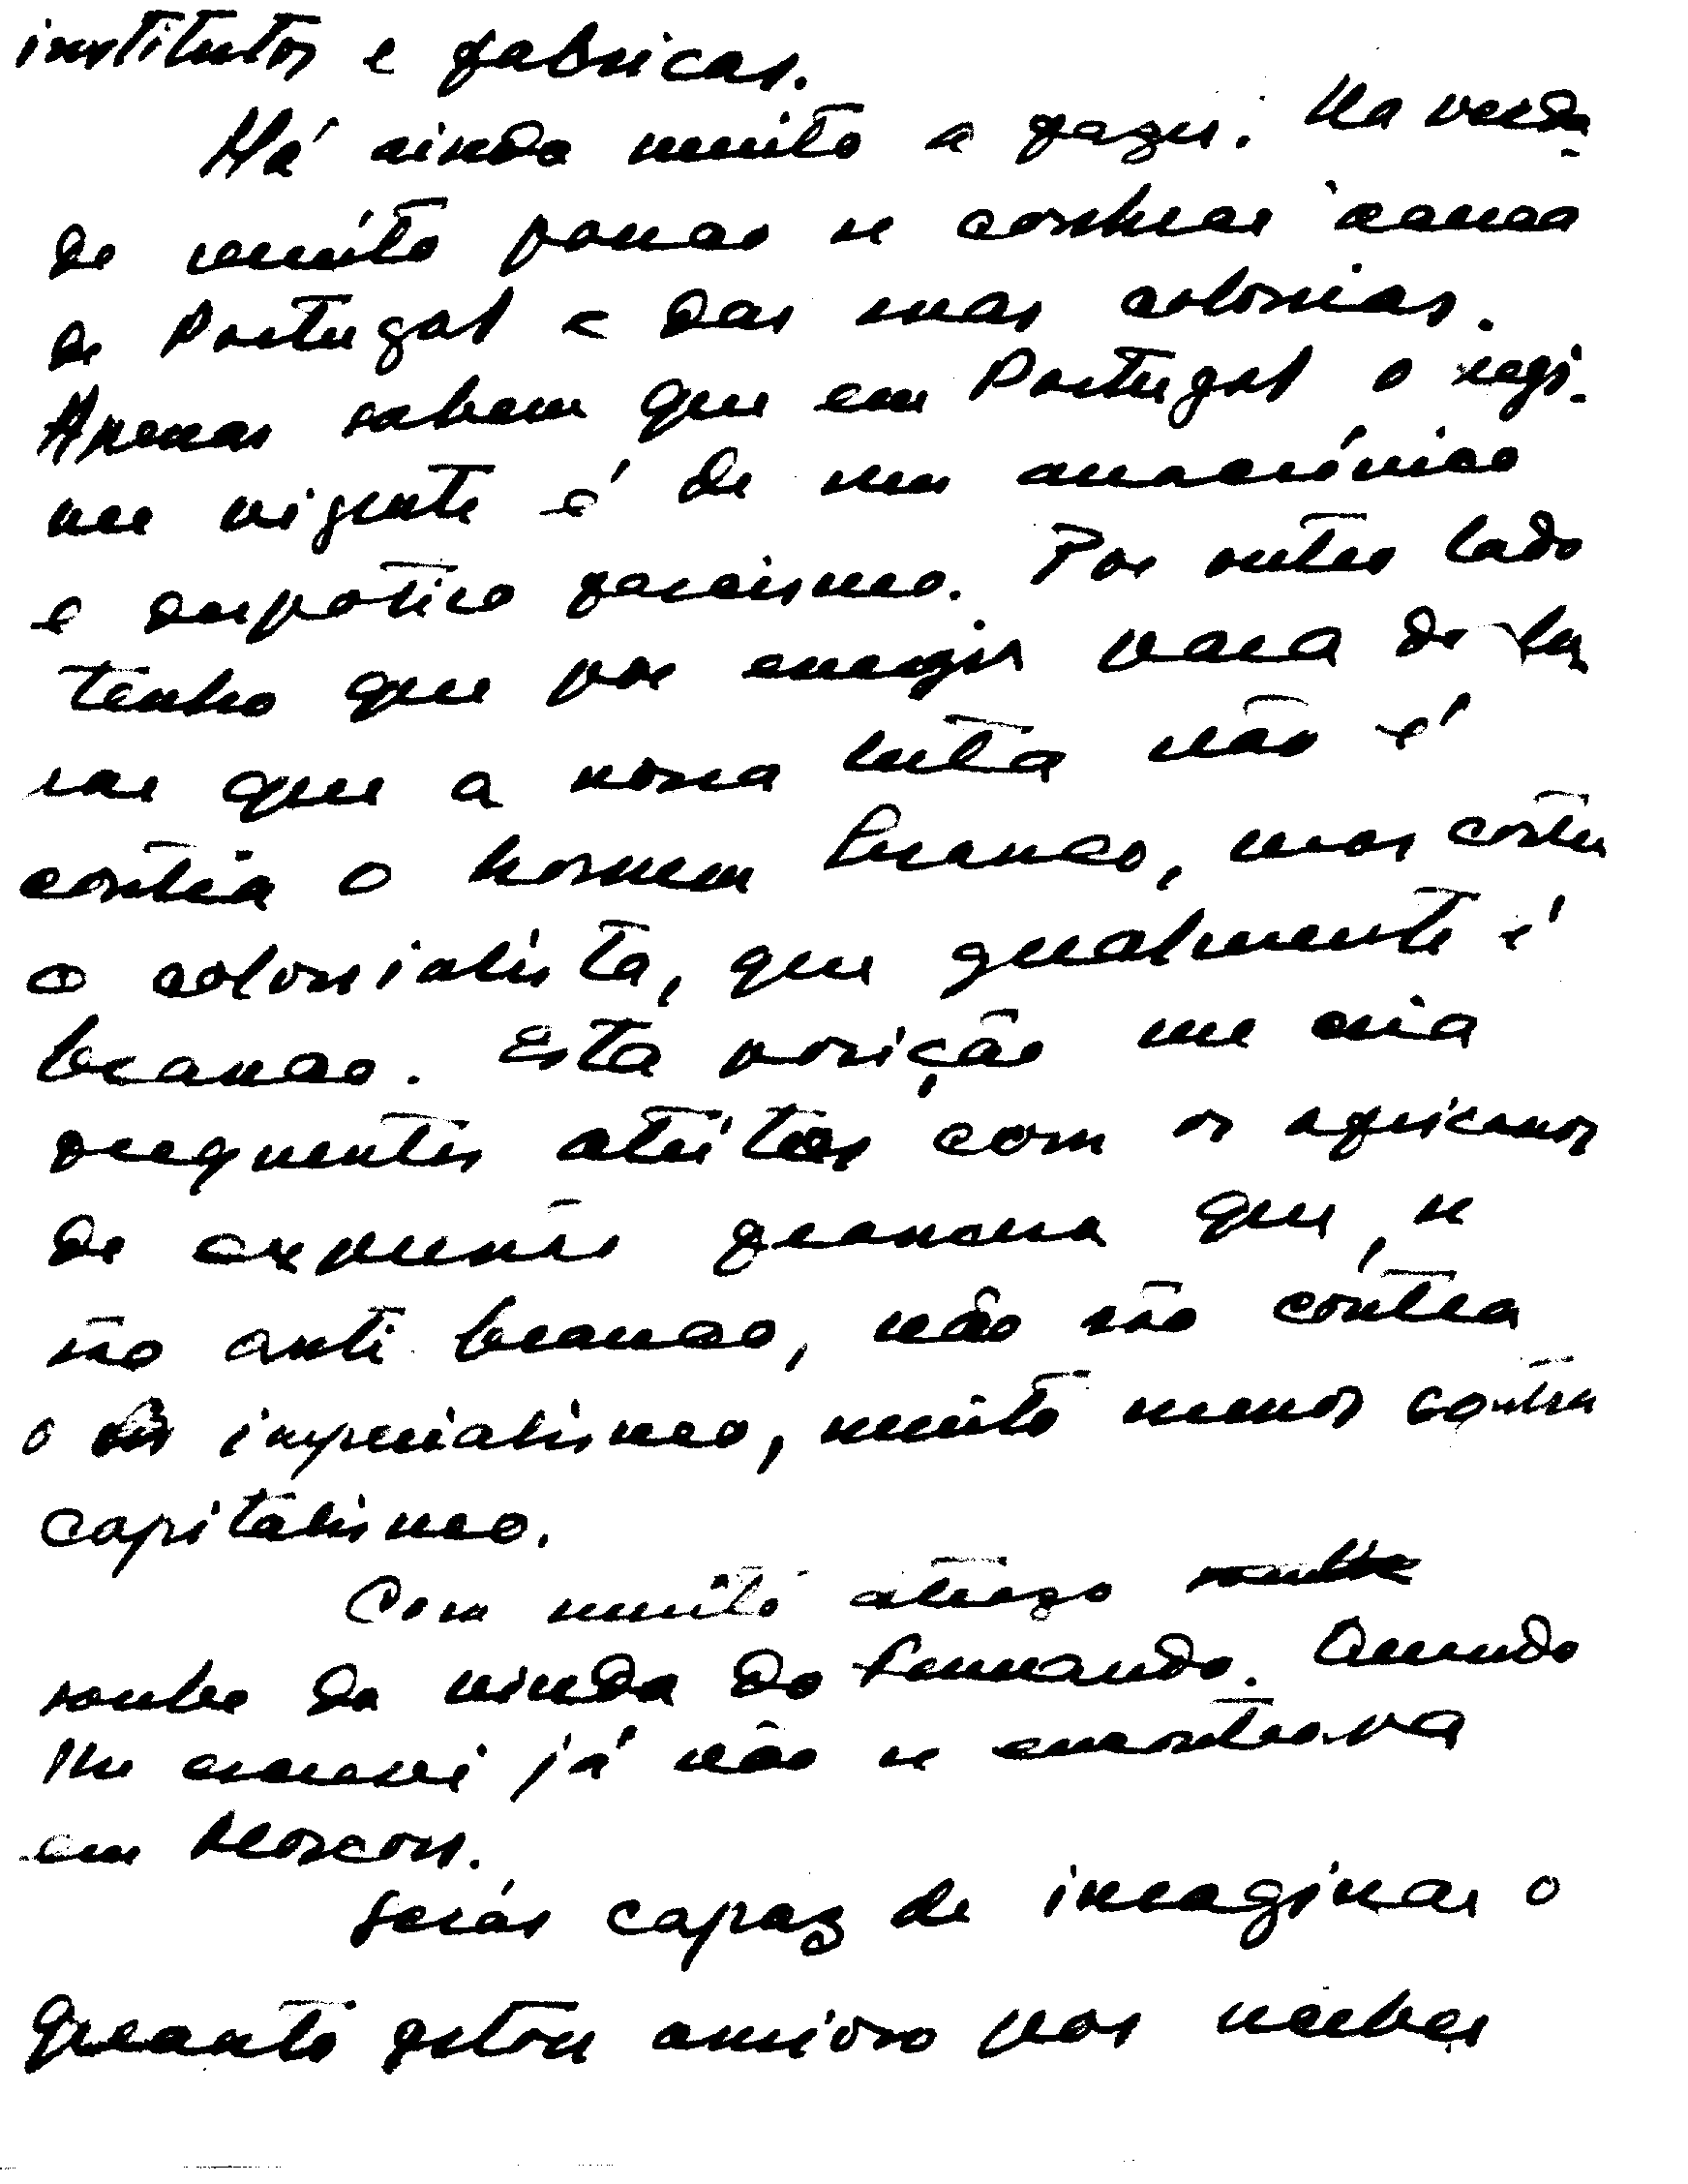 institutos e fabricas.
Há ainda muito a fazer. Na verda-
de muito pouco se conhece àcerca
de Portugal e das suas colonias.
Apenas sabem que em Portugal o regi-
me vigente é de um anacrónico
e despotico fascismo. Por outro lado
tenho que por energia para de la
rar que a nossa luta não é
contra o homem branco, mas contra
o colonialista, que gualmente é
branco. Esta posição me cria
frequentes atritos com os africanos
de expressão francesa que, se
são anti branco, não são contra
o imperialismo, muito menos contra
capitalismo.
Com muito atrazo
soube da vinda do Fernando. Quando
lhe escrevi já não se encontrava
em Moscou.
Serás capaz de imaginar o
quanto estou ansioso por receber